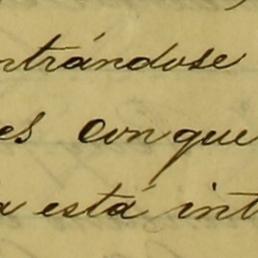 ntrándose
es con que
a está int